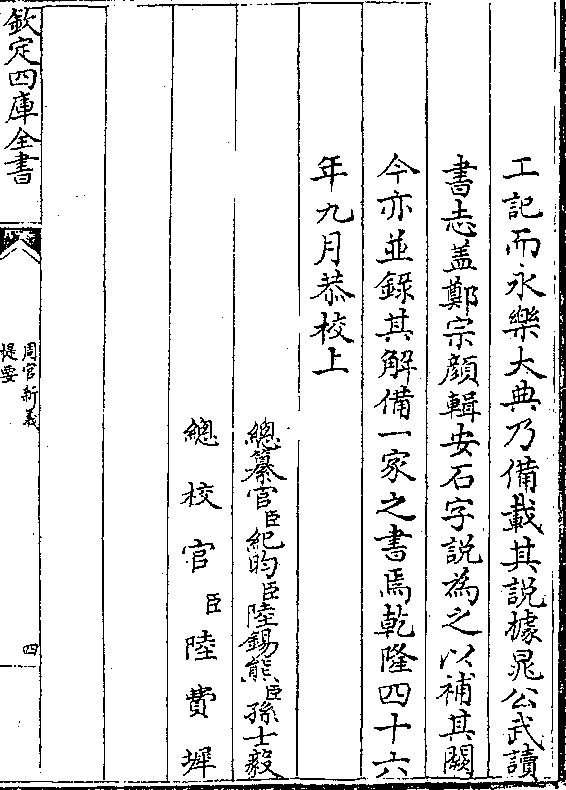 工記而永樂大典乃備載其説據晁公武讀
書志盖鄭宗顔輯安石字説為之以補其闕
今亦並錄其解備一家之書焉乾隆四十六
年九月恭校上
總纂官臣紀昀臣陸錫熊臣孫士毅
總校官臣陸費墀
欽定四庫全書
周官新義
提要
四